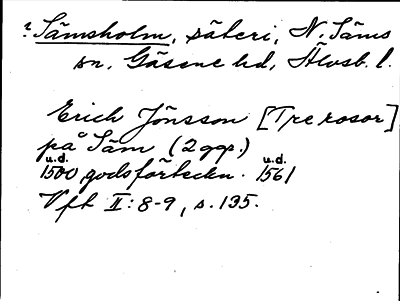 ? Sämsholm, säteri, N. Säms
sn, Gäsene hd, Älvsb. l.
Erich Jönsson [Tre rosor]
på Säm (2 ggr.)
u.d. u.d.
1500 godsförteckn. 1561
Vfh II: 8-9, s. 135.